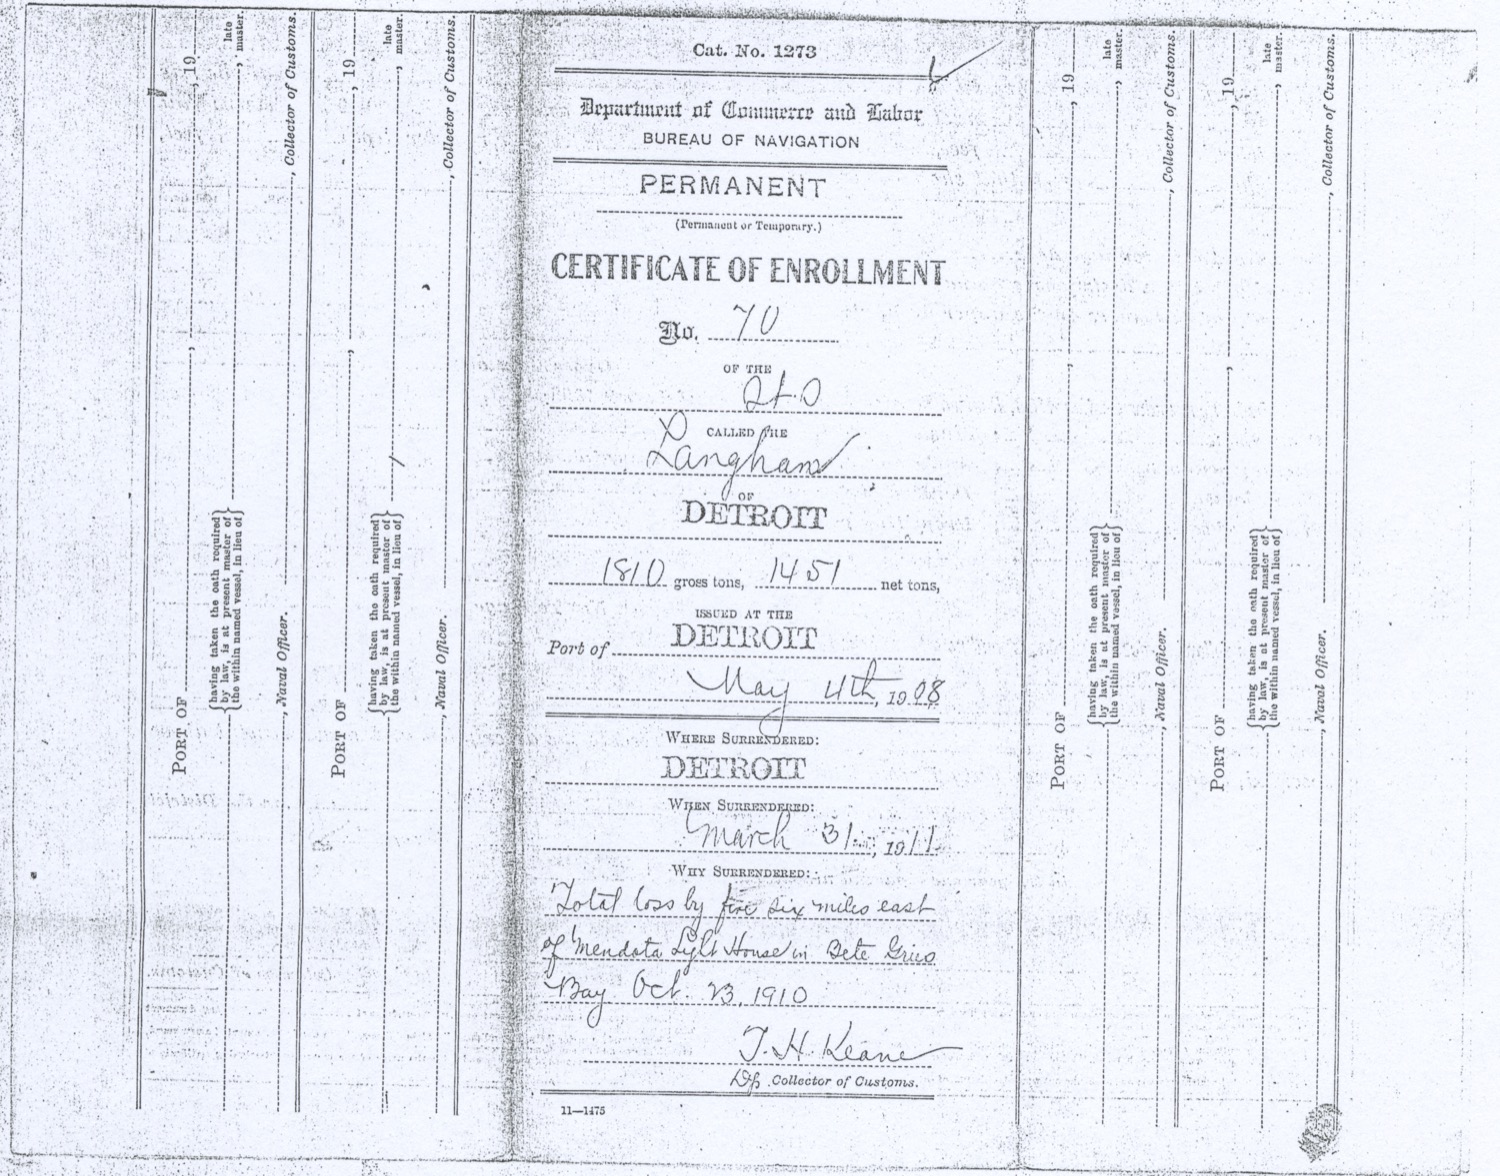 , 19
late
master.
PORT OF , , 19
having taken the oath required
by law, is at present master of
the within named vessel, in lieu of , late
master.
, Naval Officer. , Collector of Customs.
PORT OF , , 19
having taken the oath required
by law, is at present master of
the within named vessel, in lieu of , late
master.
, Naval Officer. , Collector of Customs.
Cat. No. 1273
Department of Commerce and Labor
BUREAU OF NAVIGATION
PERMANENT
(Permanent or Temporary.)
CERTIFICATE OF ENROLLMENT
No. 70
OF THE
CALLED THE
Langham
OF
DETROIT
1810 gross tons, 1451 net tons,
ISSUED AT THE
Port of DETROIT
May 4th, 1908
WHERE SURRENDERED:
DETROIT
WHEN SURRENDERED:
March 31, 1911
WHY SURRENDERED:
Total loss by fire six miles east
of Mendota Light House in Bete Gries
Bay Oct. 23, 1910
T. H. Keane
Dp. Collector of Customs.
11—1475
PORT OF , , 19
having taken the oath required
by law, is at present master of
the within named vessel, in lieu of , late
master.
, Naval Officer. , Collector of Customs.
PORT OF , , 19
having taken the oath required
by law, is at present master of
the within named vessel, in lieu of , late
master.
, Naval Officer. , Collector of Customs.